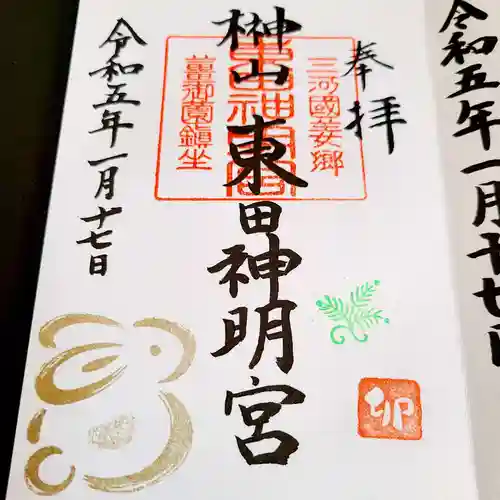 奉拝
榊山 東田神明宮
三河國薑郷
薑御園鎮坐
令和五年一月十七日
卯
令和五年一月十七日